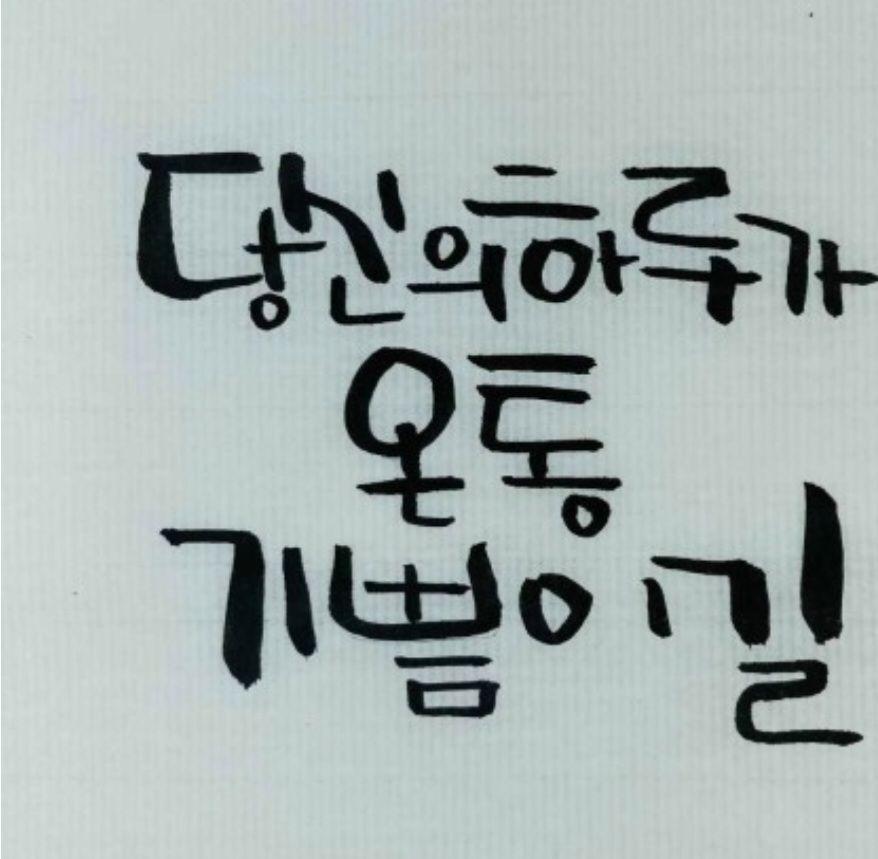 당신의하루가
온통
기쁨이길